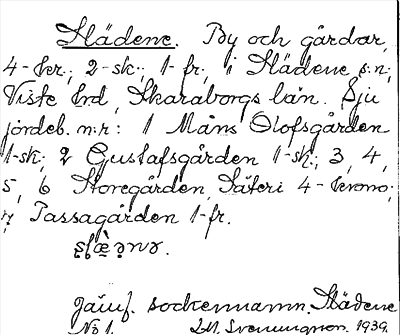 Slädene. By och gårdar,
4-kr.; 2-sk.; 1-fr., i Slädene s:n;
Viste hd, Skaraborgs län. Sju
jordeb. n:r: 1 Måns Olofsgården
1-sk.; 2 Gustafsgården 1-sk.; 3, 4,
5, 6 Storegården, Säteri 4-krono;
7, Tassagården 1-fr.
Jämf. sockennamn. Slädene
No 1. Svenungson. 1939.